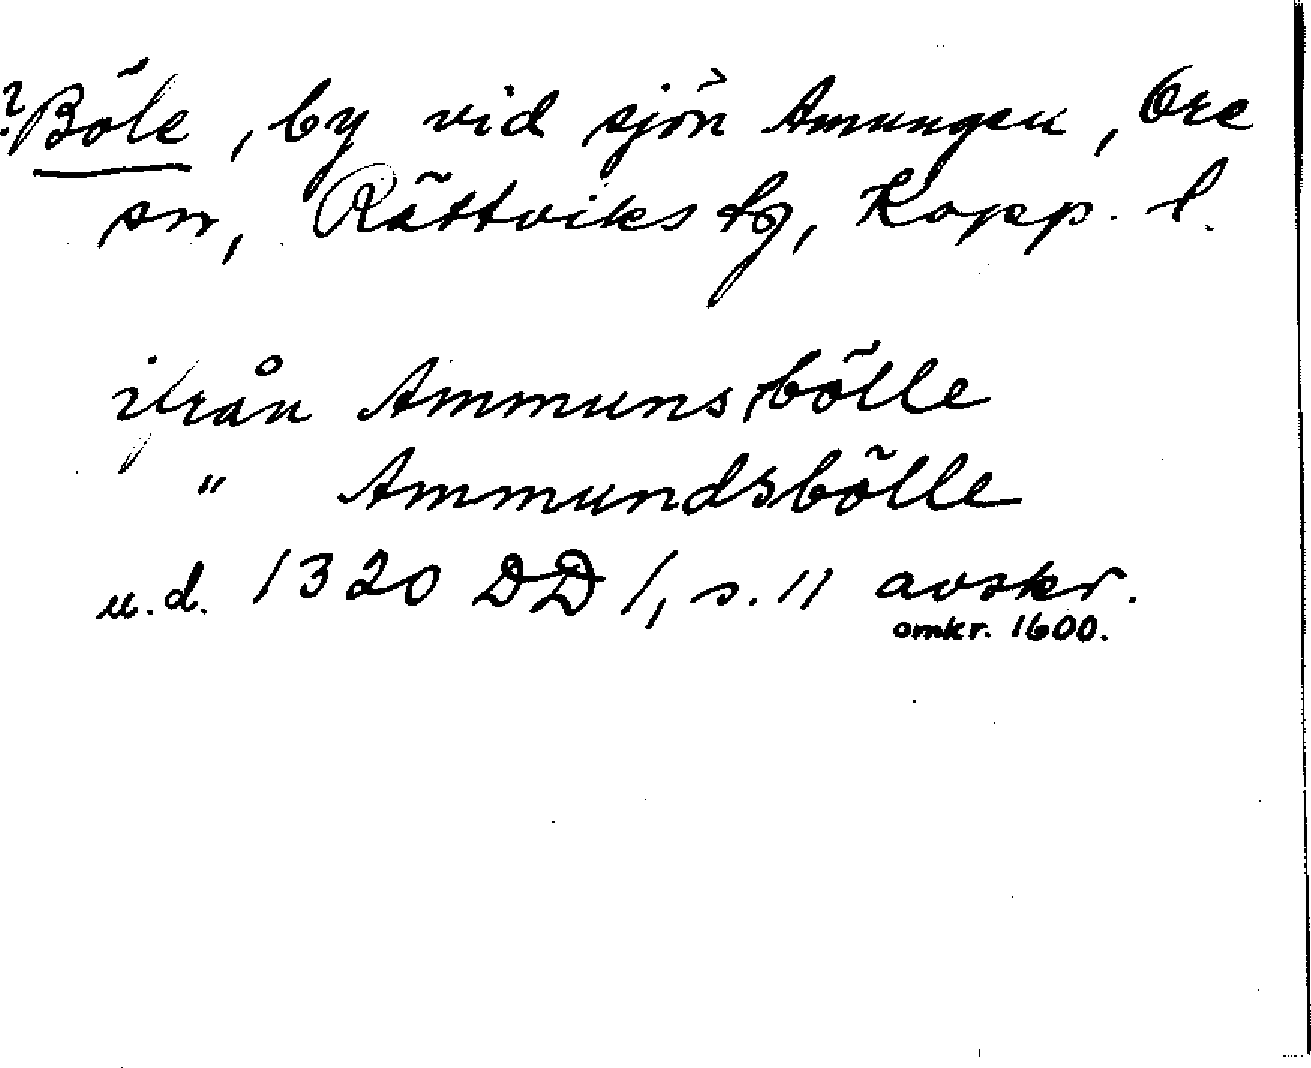 ?Böle, by vid sjön Amungen, Ore
sn, Rättviks tg, Kopp. l.
ifrån Ammunsbölle
" Ammundsbölle
u.d. 1320 DD 1, s. 11 avskr.
omkr. 1600.